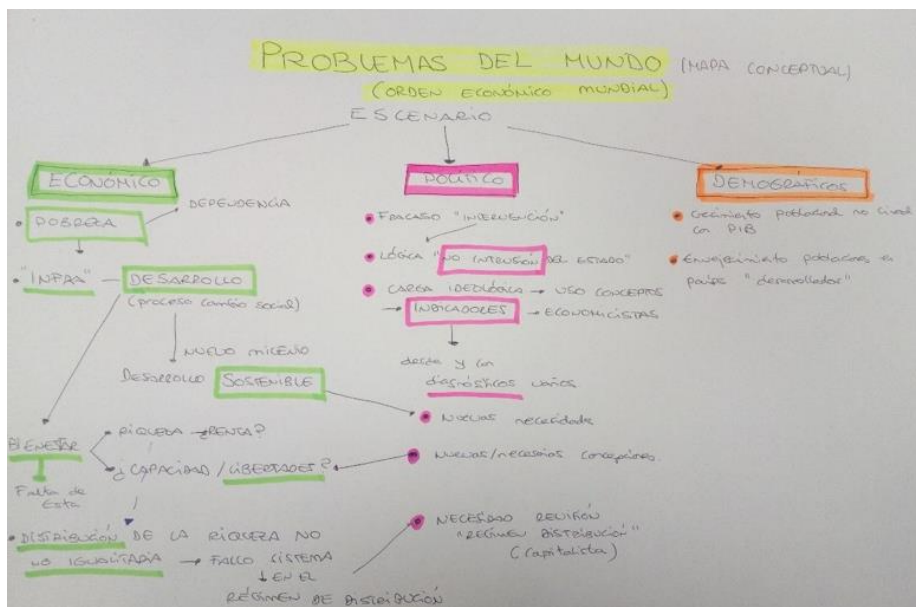 PROBLEMAS DEL MUNDO (MAPA CONCEPTUAL)
(ORDEN ECONÓMICO MUNDIAL)
ESCENARIO
ECONÓMICO
• POBREZA → DEPENDENCIA
"INFRA" — DESARROLLO
(proceso cambio social)
NUEVO MILENIO
DESARROLLO SOSTENIBLE
BIENESTAR
RIQUEZA → ¿RENTA?
¿CAPACIDAD / LIBERTADES?
Falta de
Esta
• DISTRIBUCIÓN DE LA RIQUEZA NO
NO IGUALITARIA → FALLO SISTEMA
↓ EN EL
RÉGIMEN DE DISTRIBUCIÓN
POLÍTICO
• FRACASO "INTERVENCIÓN"
• LÓGICA "NO INTRUSIÓN DEL ESTADO"
• CARGA IDEOLÓGICA → USO CONCEPTOS
→ INDICADORES → ECONOMICISTAS
desde y con
diagnósticos varios
• NUEVAS necesidades
• NUEVAS/necesarias concepciones.
• NECESIDAD REVISIÓN
"RÉGIMEN DISTRIBUCIÓN"
(Capitalista)
DEMOGRÁFICOS
• Crecimiento poblacional no lineal
con PIB
• Envejecimiento poblacional en
países "desarrollados"